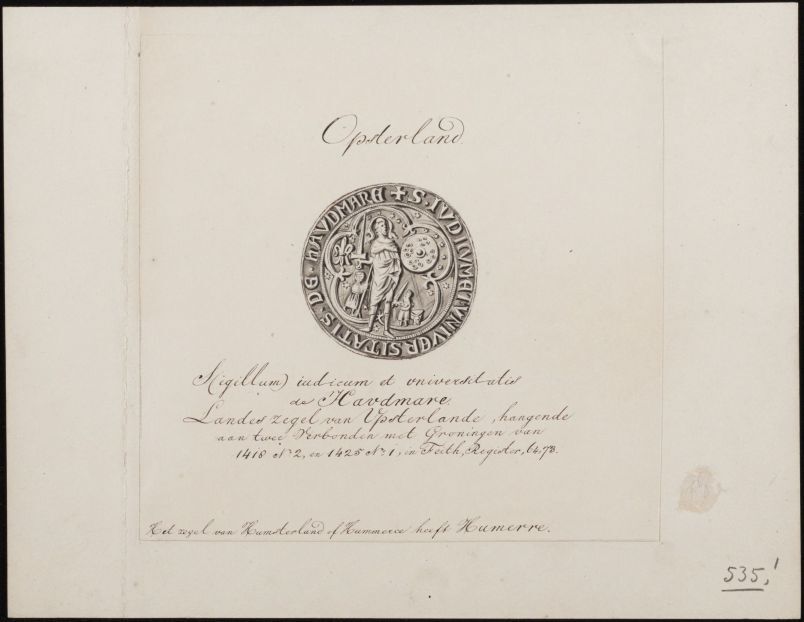 Opsterland.
✝ S. IVDICVM ET VNIVERSITATIS. DE. HAVDMARE
S(igillum) iudicum et vniversitatis
de Havdmare.
Landes zegel van Ypsterlande, hangende
aan twee Verbonden met Groningen van
1418 No. 2, en 1425 No. 1, in Feith, Register, 64, 73.
Het zegel van Humsterland of Hummerce heeft Humerre.
535,1